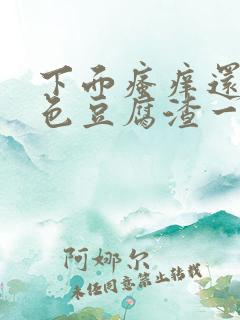 下面瘙痒還
色豆腐渣一
阿娜尔
未经同意禁止转载